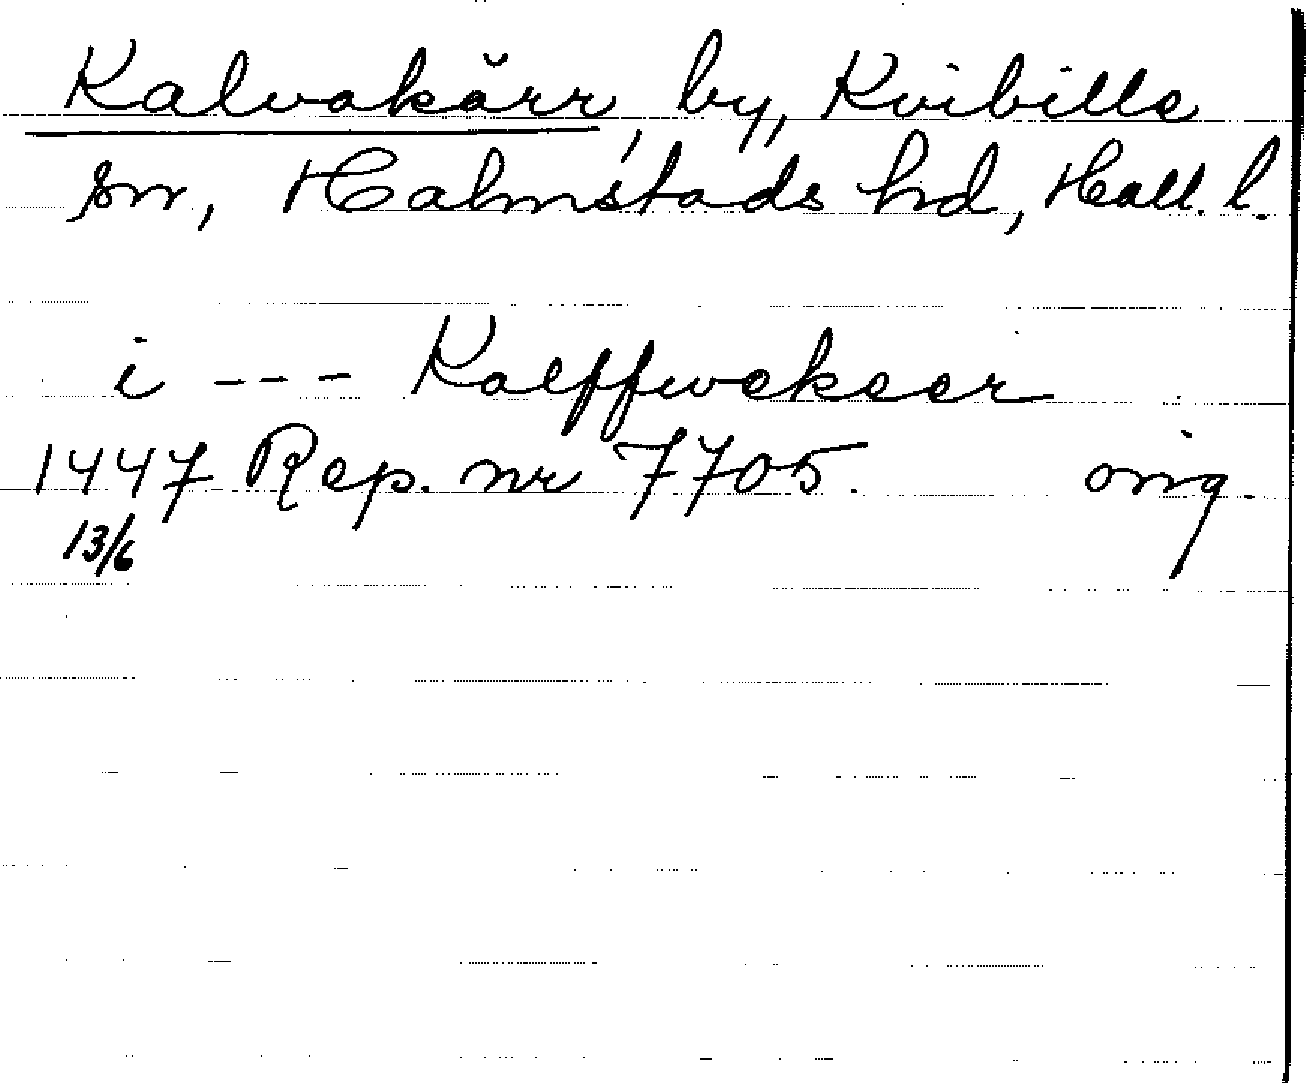 Kalvakärr, by, Kvibille
sn, Halmstads hd, Hall. l.
i --- Kalffwekeer
1447 Rep. nr 7705. orig.
13/6